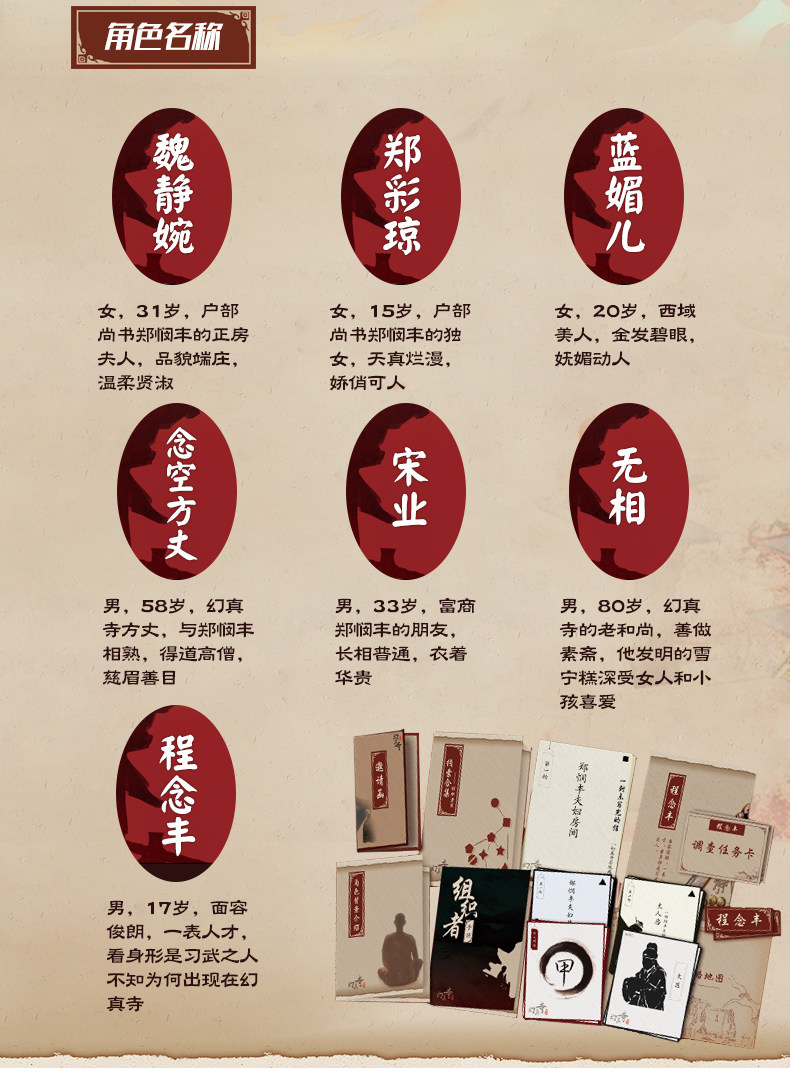 角色名称
魏静婉
女，31岁，户部
尚书郑悯丰的正房
夫人，品貌端庄，
温柔贤淑
郑彩琼
女，15岁，户部
尚书郑悯丰的独
女，天真烂漫，
娇俏可人
蓝媚儿
女，20岁，西域
美人，金发碧眼，
妩媚动人
念空方丈
男，58岁，幻真
寺方丈，与郑悯丰
相熟，得道高僧，
慈眉善目
宋业
男，33岁，富商
郑悯丰的朋友，
长相普通，衣着
华贵
无相
男，80岁，幻真
寺的老和尚，善做
素斋，他发明的雪
宁糕深受女人和小
孩喜爱
程念丰
男，17岁，面容
俊朗，一表人才，
看身形是习武之人
不知为何出现在幻
真寺
邀请函
线索合集
第一轮
郑悯丰夫妇房间
一封未写完的信
程念丰
程念丰
调查任务卡
角色背景介绍
组织者
手册
郑悯丰夫妇
主人房
程念丰
甲
地图